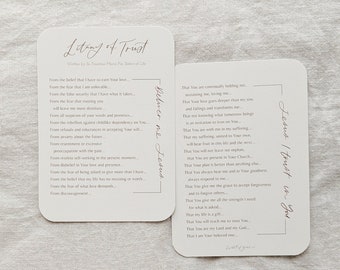 Litany of Trust
From the belief that I have to earn Your love...
From the fear that I am unlovable...
From the false security that I have what it takes...
From the fear that trusting You
will leave me more destitute...
From all suspicion of your words and promises...
From the rebellion against childlike dependency on You...
From refusals and reluctances in accepting Your will...
From anxiety about the future...
From resentment or excessive
preoccupation with the past...
From restless self-seeking in the present moment...
From disbelief in Your love and presence...
From the fear of being asked to give more than I have...
From the belief that my life has no meaning or worth...
From the fear of what love demands...
From discouragement...
Deliver me Jesus
That You are continually holding me,
sustaining me, loving me...
That Your love goes deeper than my sins
and failings and transforms me...
That not knowing what tomorrow brings
is an invitation to lean on You...
That You are with me in my suffering...
That my suffering, united to Your own,
will bear fruit in this life and the next...
That You will not leave me orphan,
that You are present in Your Church...
That Your plan is better than anything else...
That You always hear me and in Your goodness
always respond to me...
That You give me the grace to accept forgiveness
and to forgive others...
That You give me all the strength I need
for what is asked...
That my life is a gift...
That You will teach me to trust You...
That You are my Lord and my God...
That I am Your beloved one...
Jesus I trust in You